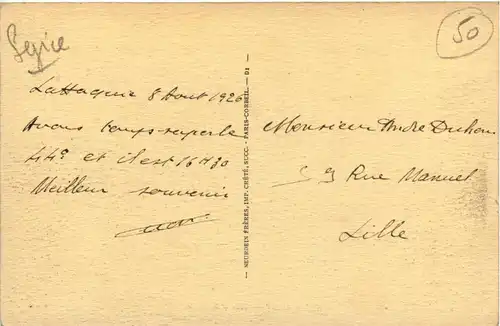 Syrie
50
Lattaquié 8 Aout 1926
Avons temps superbe
44° et il est 16 H 30
Meilleur souvenir
NEURDEIN FRÈRES, IMP. CRÉTÉ, SUCC. - PARIS-CORBEIL. - D1
Monsieur André
Rue Manuel
Lille